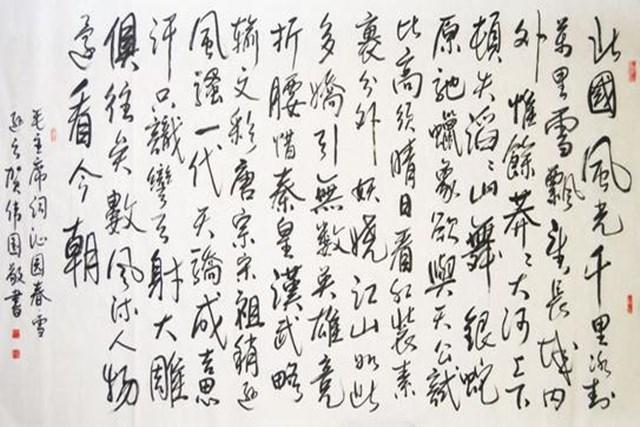 北國風光千里冰封
萬里雪飄望長城内
外惟餘莽々大河上下
頓失滔々山舞銀蛇
原馳蠟象欲與天公試
比高須晴日看红裝素
裹分外妖嬈江山如此
多嬌引無數英雄竞
折腰惜秦皇漢武略
输文彩唐宗宋祖稍逊
風骚一代天驕成吉思
汗只識彎弓射大雕
俱往矣數風流人物
還看今朝
毛主席词沁园春雪
贺伟国敬書